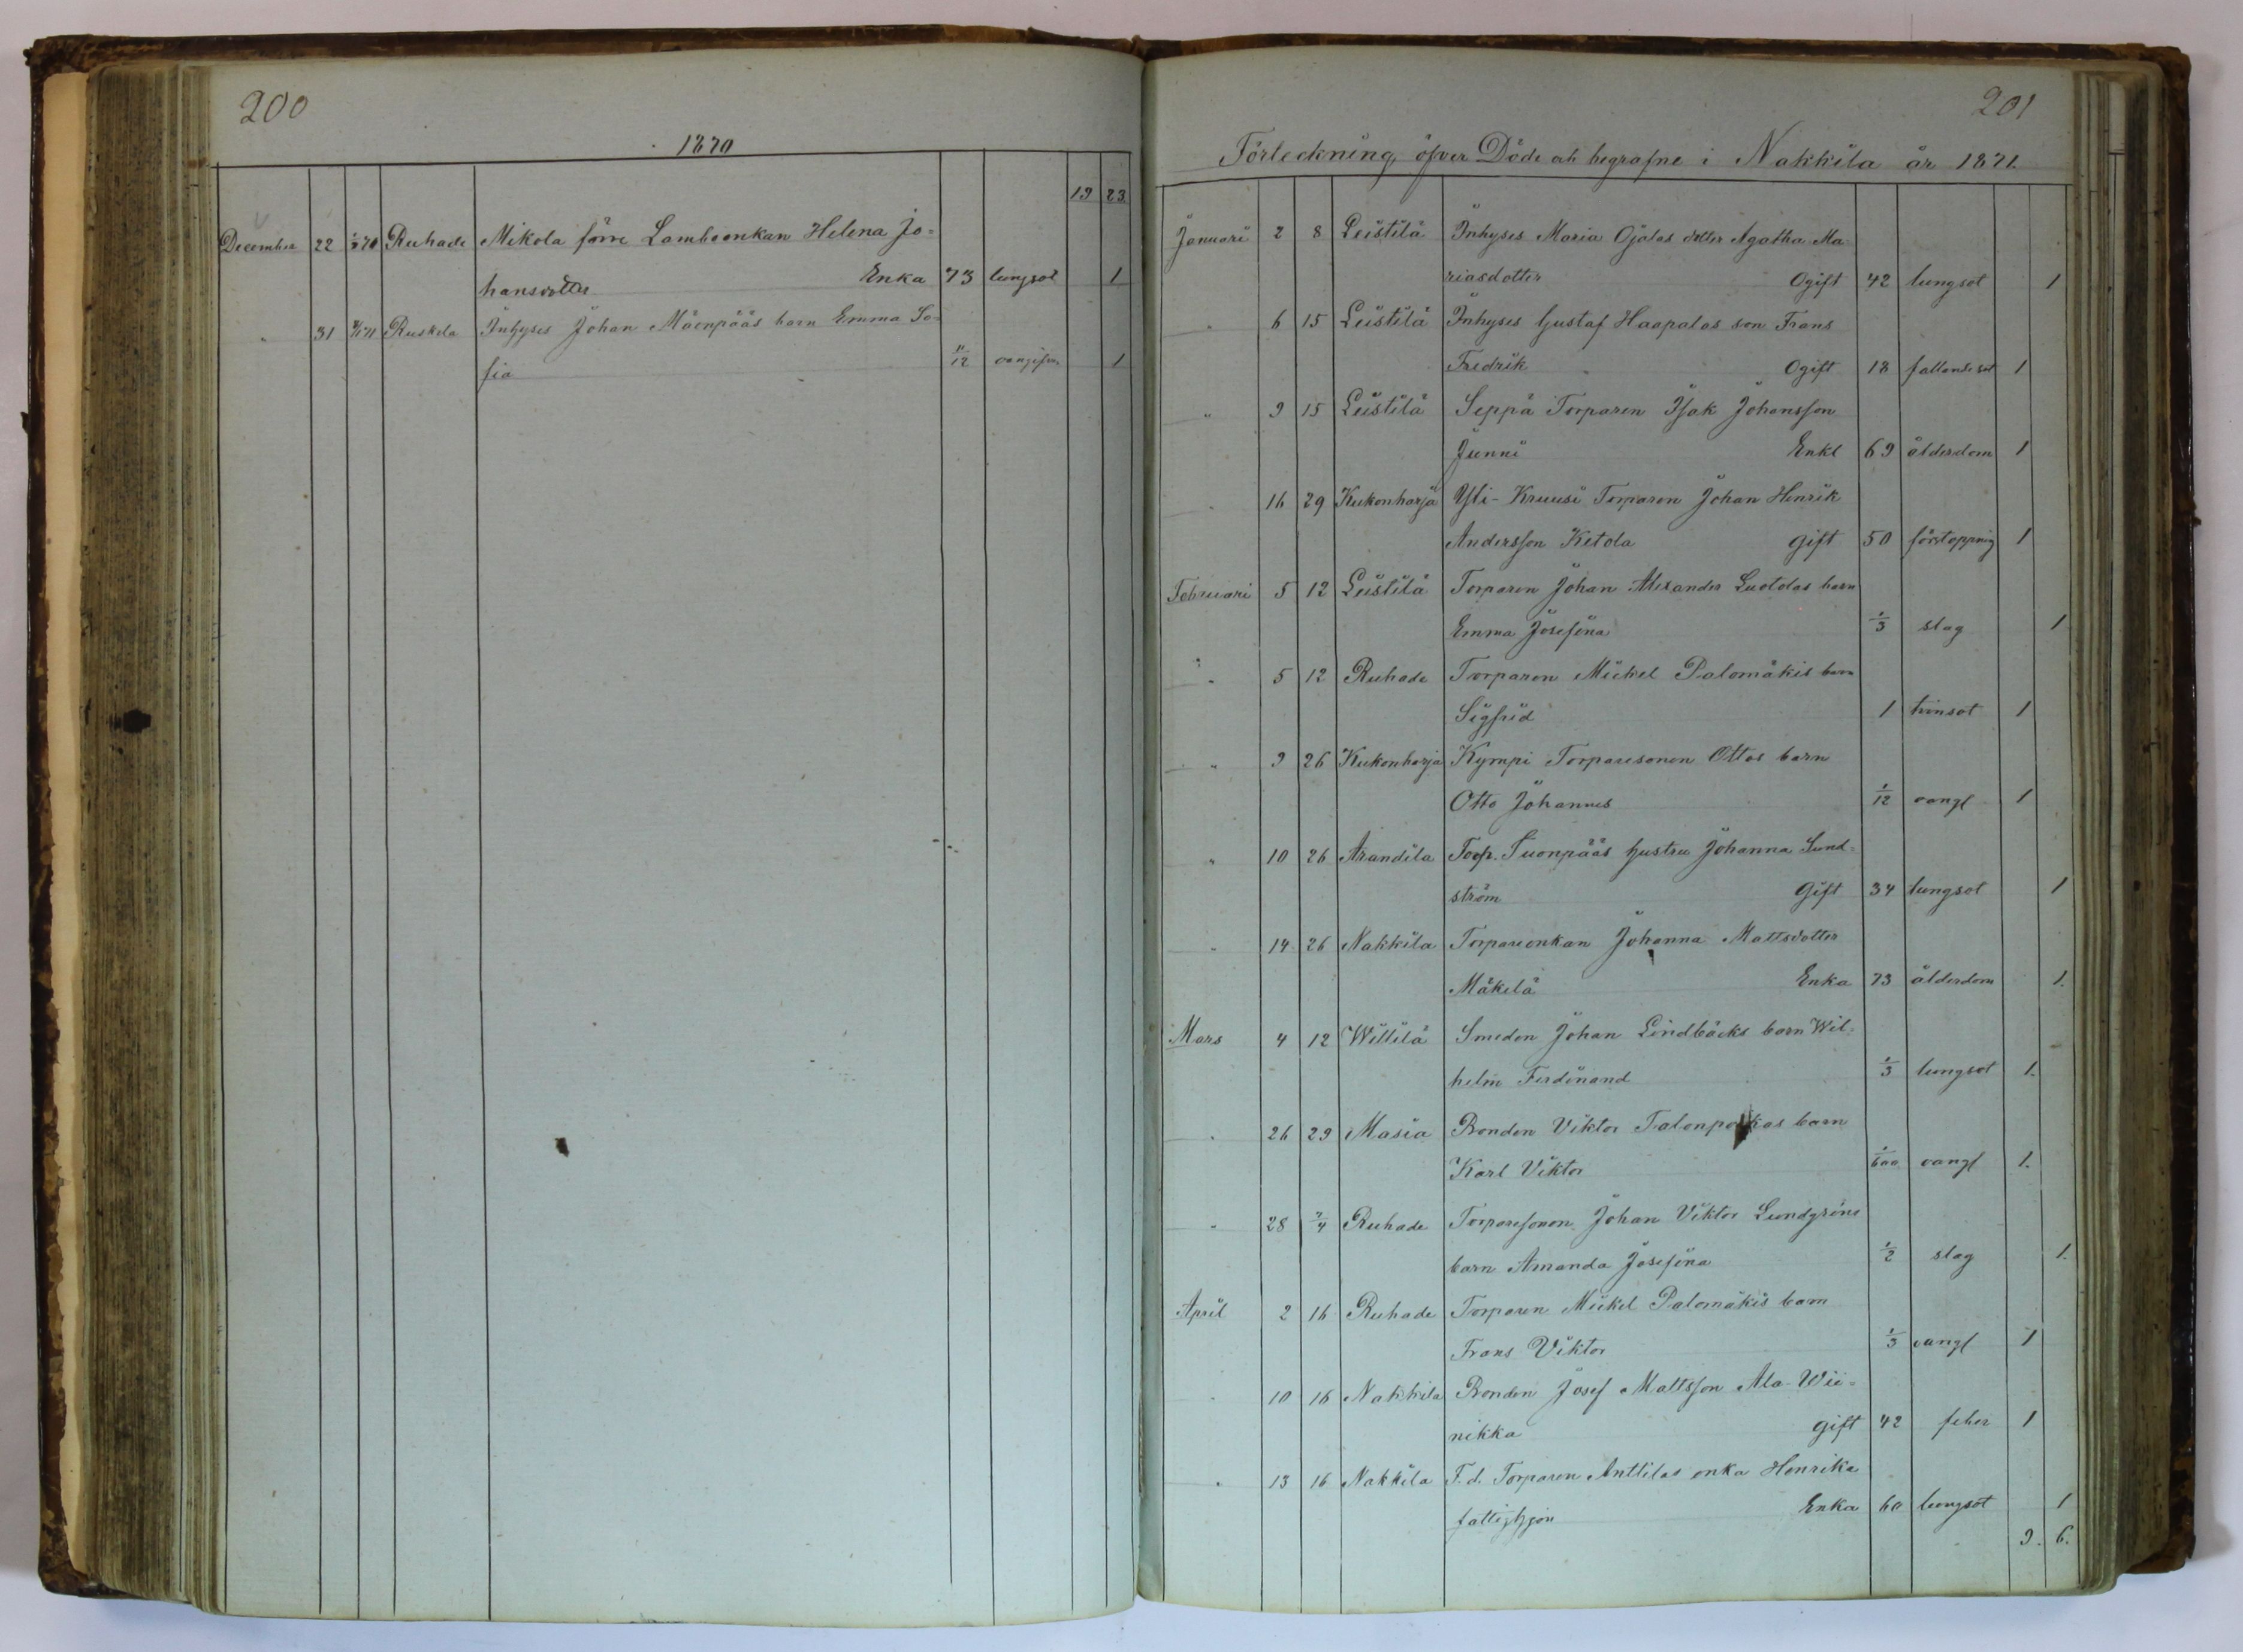 200
1870
19 23
December 22 Ruhade Mikola förre Lamboenkan Helena Jo=
hansdotter Enka 73 lungsot 1
" 31 Ruskela Inhyses Johan Mäenpääs barn Emma So=
fia 11/12 1
201
Förteckning öfver Döde och begrafne i Nakkila år 1871.
Januari 2 8 Leistilä Inhyses Maria Ojalas dotter Agatha Ma
riasdotter Ogift 42 lungsot 1
" 6 15 Leistilä Inhyses Gustaf Haapalas son Frans
Fredrik Ogift 18 fallandesot 1
" 9 15 Leistilä Seppä Torparen Isak Johansson
Junni Enkl 69 ålderdom 1
" 16 29 Kukonharja Yli-Kruusi Torparen Johan Henrik
Andersson Ketola gift 50 förstoppnig 1
Februari 5 12 Leistilä Torparen Johan Alexander Luotolas barn
Emma Josefina 1/3 slag 1
" 5 12 Ruhade Torparen Mickel Palomäkis barn
Sigfrid 1 tvinsot 1
" 9 26 Kukonharja Kympi Torparesonen Ottos barn
Otto Johannes 1/12 oangf 1
" 10 26 Arandila Torp. Suonpääs hustru Johanna Sund=
ström Gift 34 lungsot 1
" 14 26 Nakkila Torpareenkan Johanna Mattsdotter
Mäkelä Enka 73 ålderdom 1.
Mars 4 12 Wiltilä Smeden Johan Lindbäcks barn Wil=
helm Ferdinand 1/3 lungsot 1.
" 26 29 Masia Bonden Viktor Talonpoikas barn
Karl Viktor oangf 1.
" 28 2/4 Ruhade Torparesonen Johan Viktor Lundgréns
barn Amanda Josefina 1/2 slag 1.
April 2 16 Ruhade Torparen Mickel Palomäkis barn
Frans Viktor 1/3 oangf 1
" 10 16 Nakkila Bonden Josef Mattsson Ala-Wii=
nikka gift 42 feber 1
" 13 16 Nakkila F.d. Torparen Anttilas enka Henrika
fattighjon Enka 60 lungsot 1
9. 6.